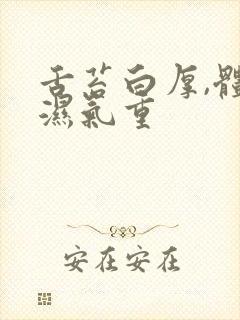 舌苔白厚,體
濕氣重
安在安在